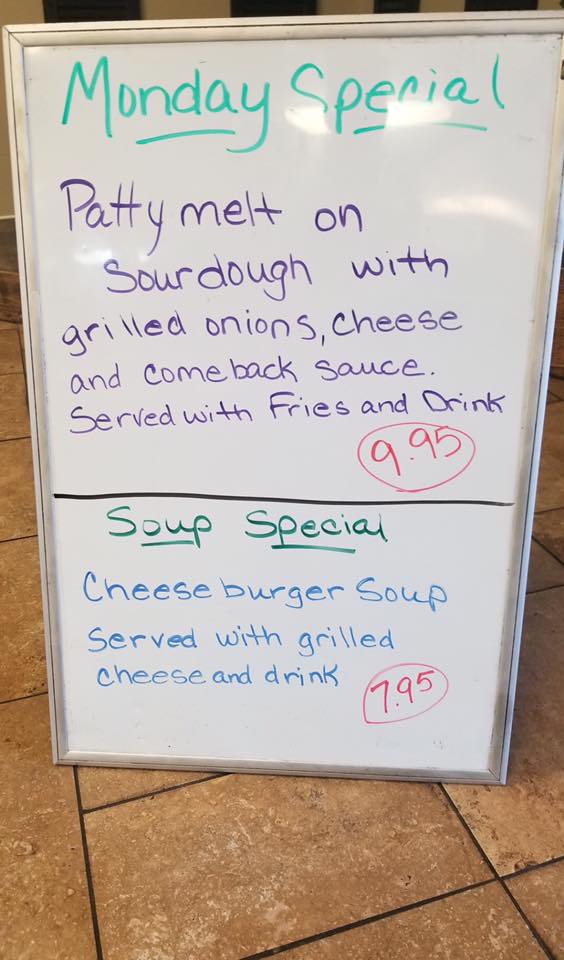 Monday Special
Patty melt on
Sourdough with
grilled onions, cheese
and comeback sauce.
Served with Fries and Drink
9.95
Soup Special
Cheeseburger Soup
Served with grilled
cheese and drink
7.95